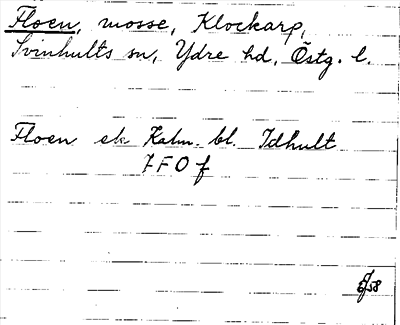 Floen, mosse, Klockarp,
Svinhults sn, Ydre hd, Östg. l.
Floen ek Katm. bl. Idhult
7 F O f